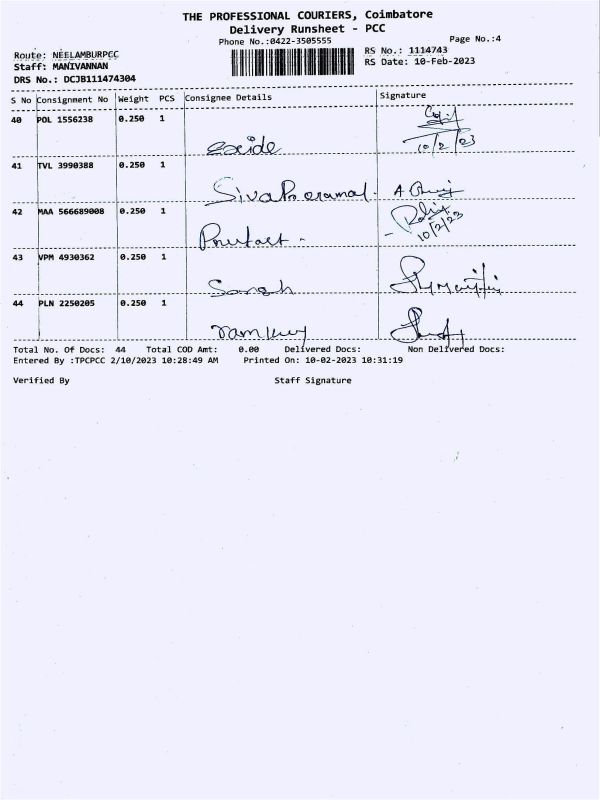 THE PROFESSIONAL COURIERS, Coimbatore
Delivery Runsheet - PCC
Phone No.:0422-3505555
Page No.:4
Route: NEELAMBURPCC
RS No.: 1114743
Staff: MANIVANNAN
RS Date: 10-Feb-2023
DRS No.: DCJB111474304
S No Consignment No Weight PCS Consignee Details Signature
40 POL 1556238 0.250 1
Exide 10/2/23
41 TVL 3990388 0.250 1
SivaPerumal.
42 MAA 566689008 0.250 1
10/2/23
43 VPM 4930362 0.250 1
44 PLN 2250205 0.250 1
Total No. Of Docs: 44 Total COD Amt: 0.00 Delivered Docs: Non Delivered Docs:
Entered By :TPCPCC 2/10/2023 10:28:49 AM Printed On: 10-02-2023 10:31:19
Verified By Staff Signature